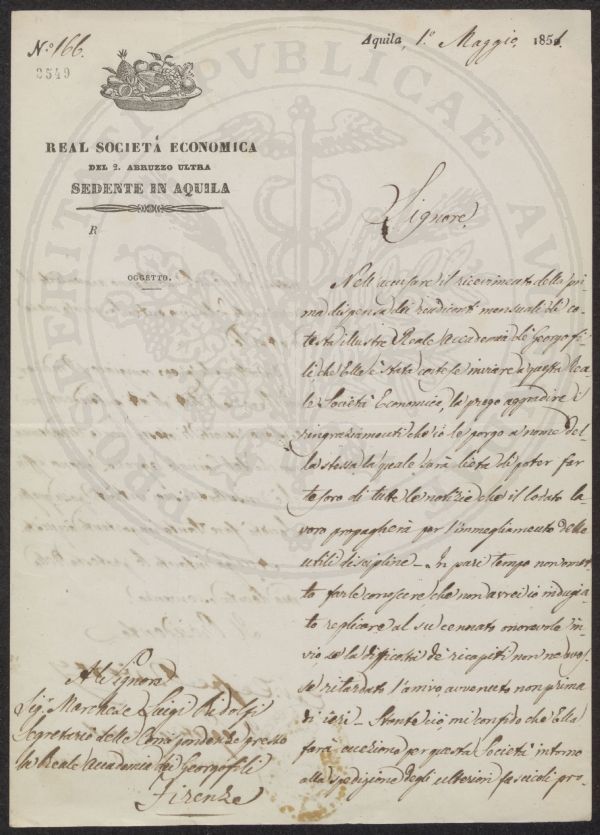 N.° 166.
3549
Aquila, 1.° Maggio, 1851.
REAL SOCIETÁ ECONOMICA
DEL 2. ABRUZZO ULTRA
SEDENTE IN AQUILA
R
OGGETTO.
Signore,
Nell'accusare il ricevimento della pri-
ma dispensa dei rendiconti mensuali di co-
testa illustre Reale Accademia de' Georgofi-
li che Ella è stata cortese inviare a questa Rea-
le Società Economica, la prego aggradire i
ringraziamenti che io le porgo a nome del-
la stessa, la quale sarà lieta di poter far
tesoro di tutte le notizie che il lodato la-
voro propagherà per l'immegliamento delle
utili discipline_ In pari tempo non omet-
to farle conoscere, che non avrei io indugia-
to replicare al su cennato onorevole in-
vio, se la difficoltà de' ricapiti non ne aves-
se ritardato l'arrivo, avvenuto non prima
di ieri_ Stante ciò, mi confido che Ella
farà eccezione per questa Società intorno
alla spedizione degli ulteriori fascicoli pro-
Al Signore
Sig. Marchese Luigi Ridolfi
Segretario delle Corrispondenze presso
la Reale Accademia dei Georgofili
Firenze
PROSPERITATI PUBLICAE AU